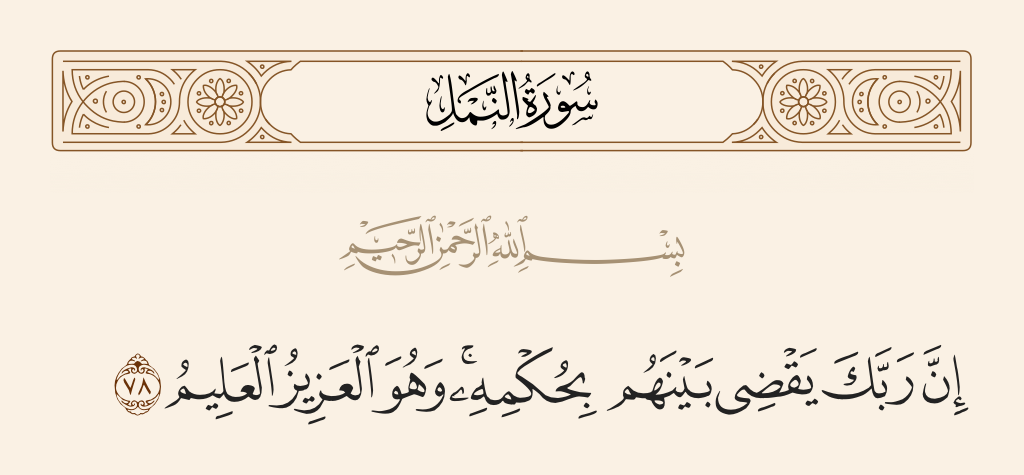 سُورَةُ النَّمۡلِ
بِسۡمِ ٱللَّهِ ٱلرَّحۡمَٰنِ ٱلرَّحِيمِ
إِنَّ رَبَّكَ يَقۡضِي بَيۡنَهُم بِحُكۡمِهِۦۚ وَهُوَ ٱلۡعَزِيزُ ٱلۡعَلِيمُ ٧٨